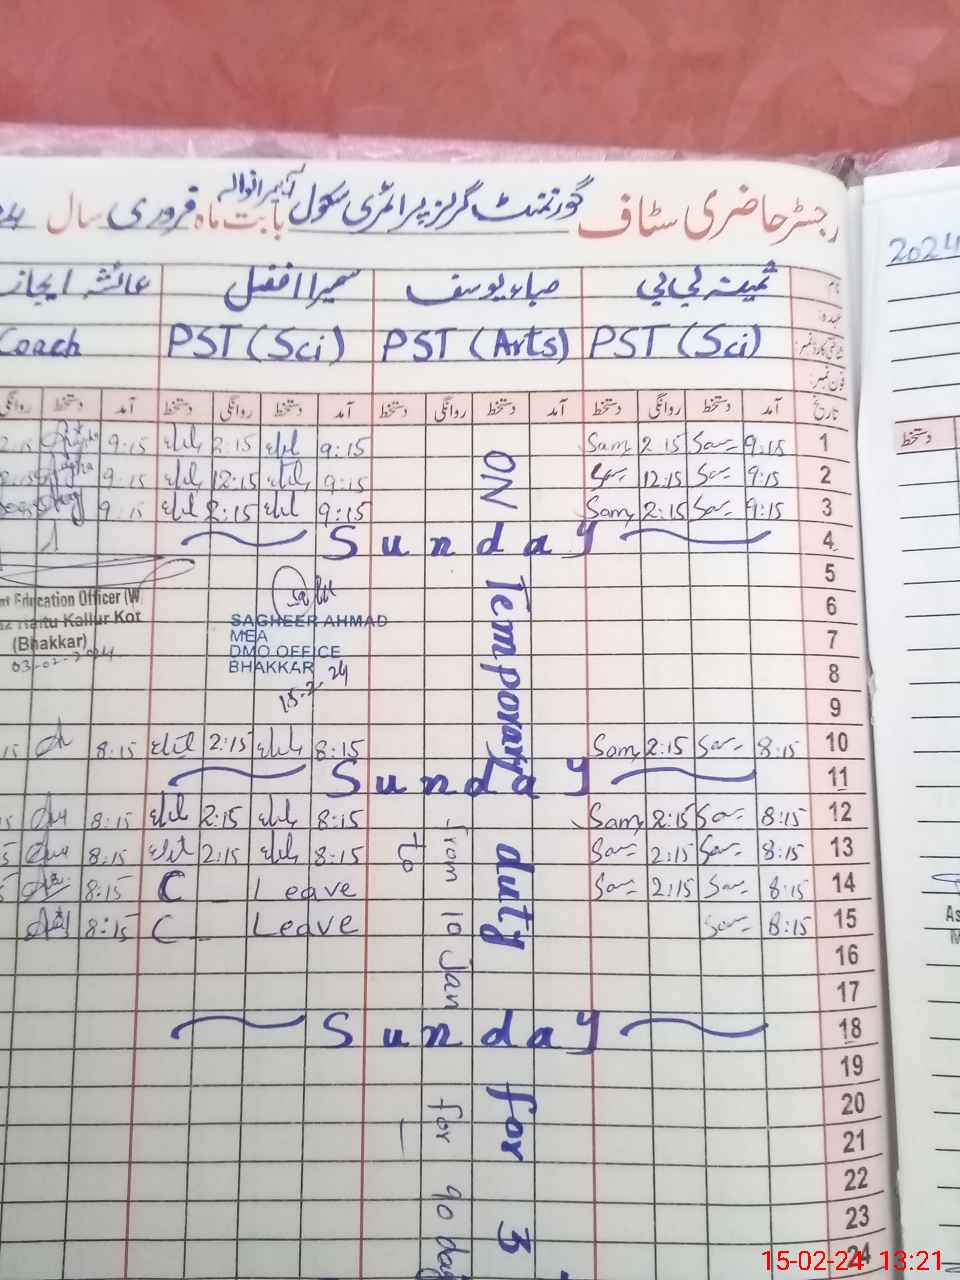 رجسٹر حاضری سٹاف گورنمنٹ گرلز پرائمری سکول بابت ماہ فروری سال
2024
نام ثمینہ بی بی صباء یوسف سمیرا افضل عائشہ ایجاز
عہدہ:
PST (Sci) PST (Arts) PST (Sci) Coach
فون نمبر:
تاریخ آمد دستخط روانگی دستخط آمد دستخط روانگی دستخط آمد دستخط روانگی دستخط آمد دستخط روانگی
دستخط
1 9:15 2:15 9:15 2:15 9:15
2 9:15 12:15 9:15 12:15 9:15
3 9:15 2:15 9:15 2:15 9:15
4 Sunday
5
6
7
8
9
10 8:15 2:15 8:15 2:15 8:15
11 Sunday
12 8:15 2:15 8:15 2:15 8:15
13 8:15 2:15 8:15 2:15 8:15
14 8:15 2:15 C_Leave 8:15
15 8:15 C_Leave 8:15
16
17
18 Sunday
19
20
21
22
23
24
ON Temporary duty for 3
from 10 Jan
to
for 90 day
Education Officer (W
Kallur Kot
(Bhakkar)
03-02-2024
SAGHEER AHMAD
MEA
DMO OFFICE
BHAKKAR
15-2-24
15-02-24 13:21